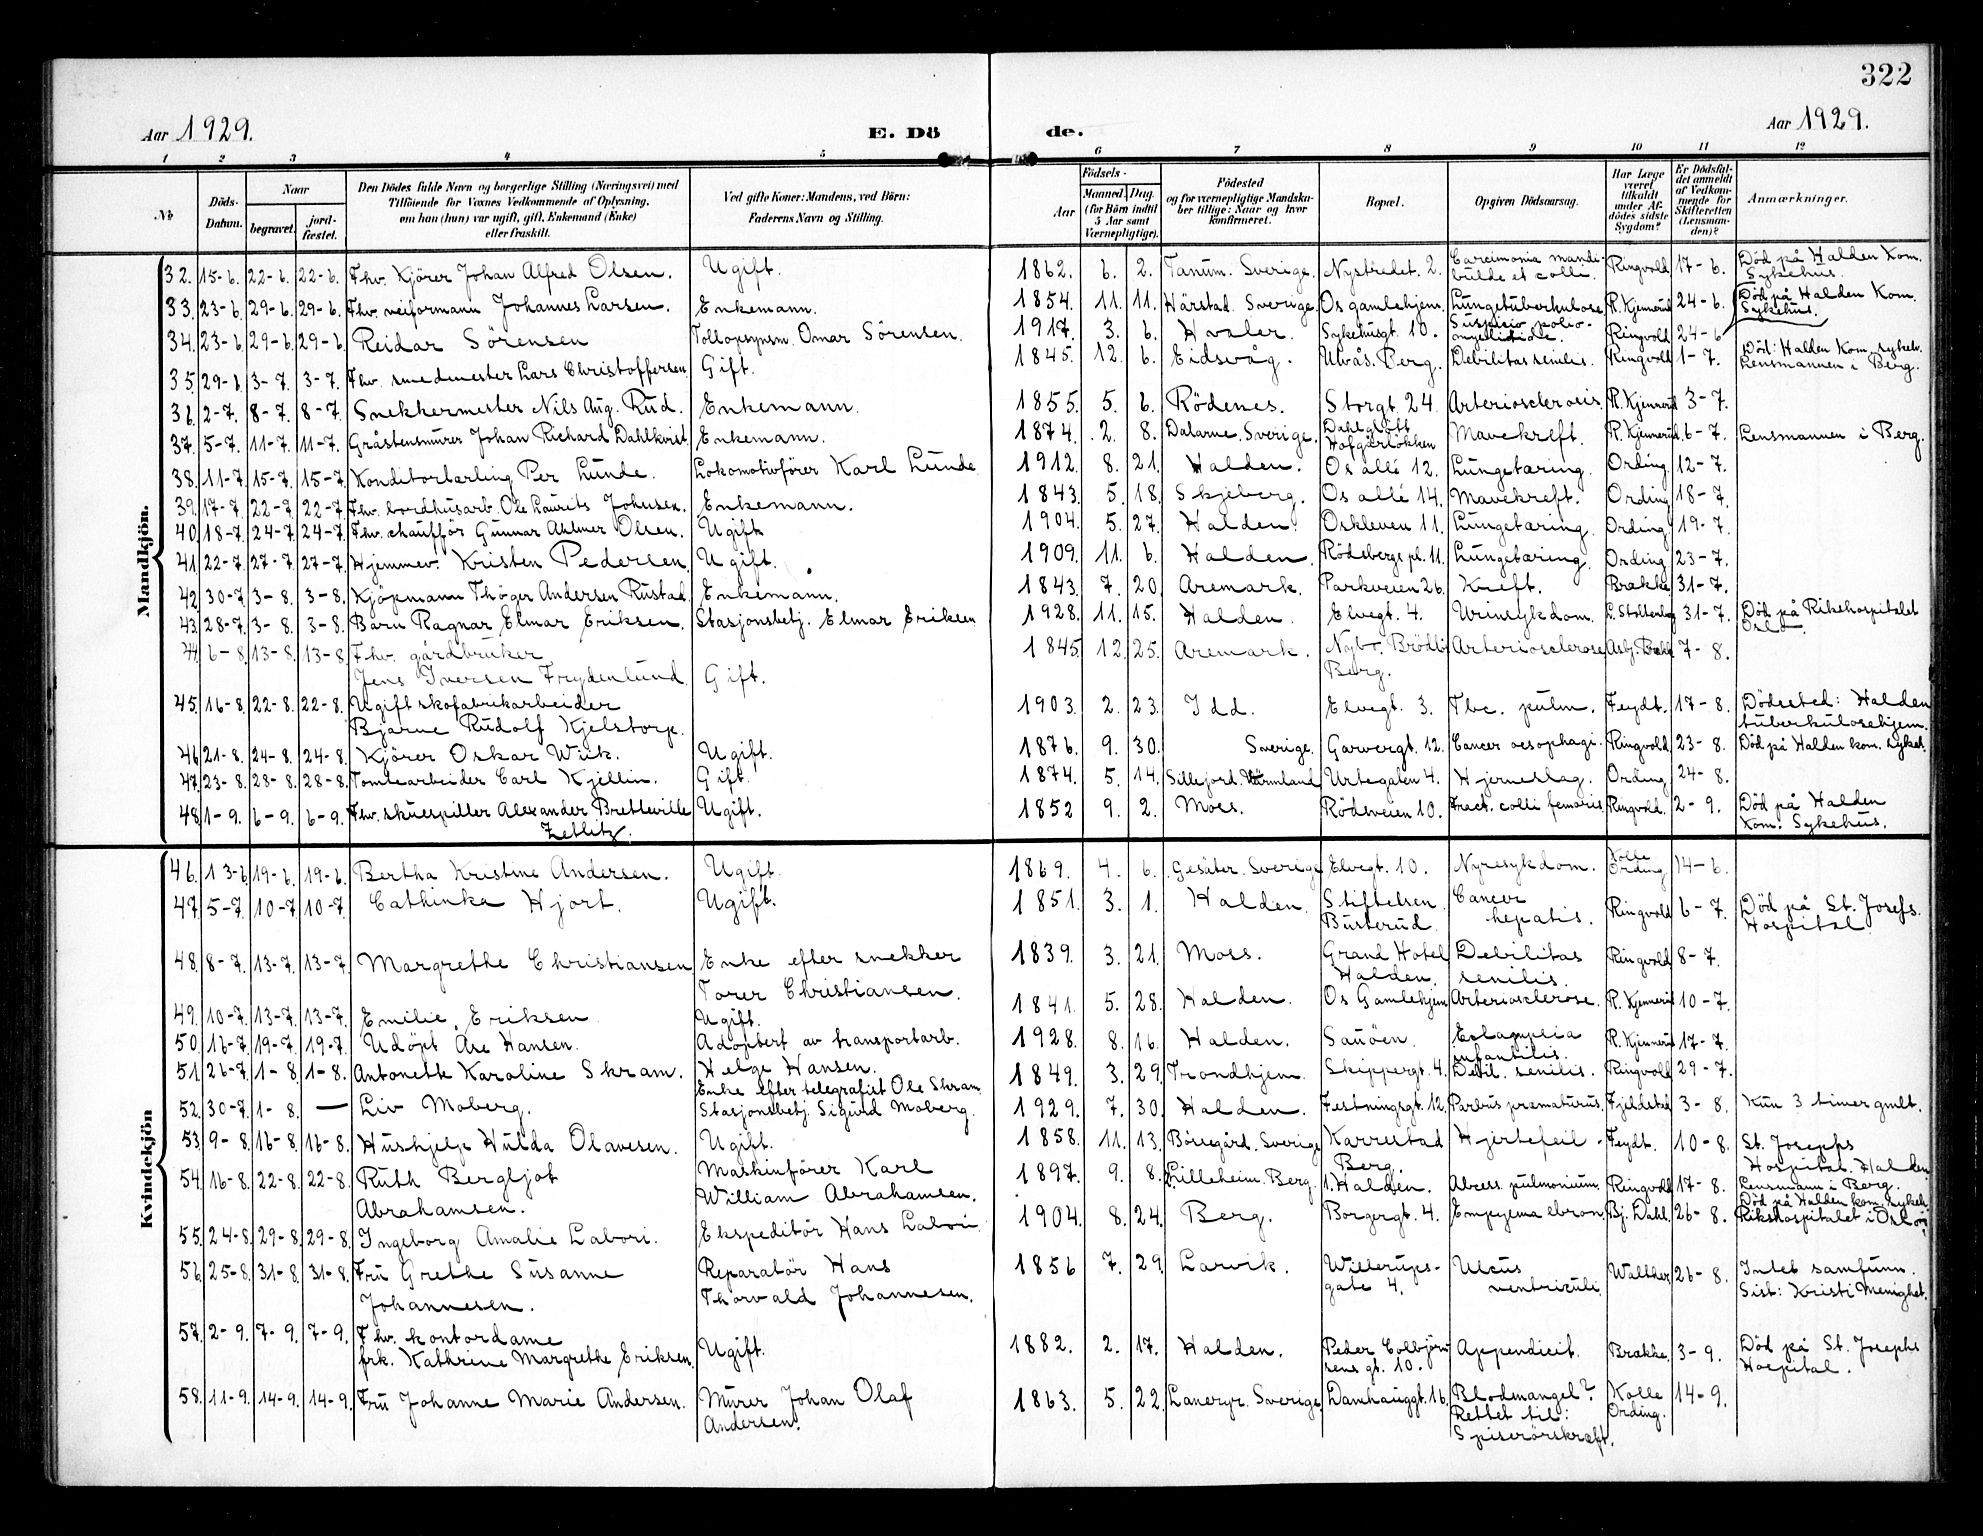 322
Aar 1929.
E. Dö de.
Aar 1929.
1 2 3 4 5 6 7 8 9 10 11 12
No
Döds-Datum.
Naar
begravet.
jord-fæstet.
Den Dödes fulde Navn og borgerlige Stilling (Næringsvei) med
Tilföiende for Voxnes Vedkommende af Oplysning,
om han (hun) var ugift, gift, Enkemand (Enke)
eller fraskilt.
Ved gifte Koner: Mandens, ved Börn:
Faderens Navn og Stilling.
Födsels-
Aar
Maaned. Dag.
(for Börn indtil
5 Aar samt
Værnepligtige).
Födested
og for værnepligtige Mandska-
ber tillige: Naar og hvor
konfirmeret.
Bopæl.
Opgiven Dödsaarsag.
Har Læge
været
tilkaldt
under Af-
dödes sidste
Sygdom?
Er Dödsfal-
det anmeldt
af Vedkom-
mende for
Skifteretten
(Lensman-
den)?
Anmærkninger.
Mandkjön.
32. 15-6. 22-6. 22-6. Fhv. Kjörer Johan Alfred Olsen. Ugift. 1862. 6. 2. Tanum. Sverige. Nystredet. 2. Carcimonia mandi-
bulde et colli. Ringvold 17-6. Död på Halden Kom.
Sykehus.
33. 23-6. 29-6. 29-6. Fhv. veiformann Johannes Larsen. Enkemann. 1854. 11. 11. Härstad. Sverige. Os gamlehjem. Lungetuberkulose R. Kjennerud 24-6. Död på Halden Kom.
Sykehus.
34. 23-6. 29-6. 29-6. Reidar Sörensen Tollopsynsm. Omar Sörensen. 1917. 3. 6. Hvaler. Sykehusgt. 10. Suspicio polio-
myelitide. Ringvold 24-6
35. 29-6. 3-7. 3-7. Fhv. smedmester Lars Christoffersen Gift. 1845. 12. 6. Eidsvåg. Ulvås. Berg. Debilitas senilis. Ringvold 1-7. Död: Halden Kom. sykeh.
Lensmannen i Berg.
36. 2-7. 8-7. 8-7. Snekkermester Nils Aug. Rud. Enkemann. 1855. 5. 6. Rödenes. Storgt. 24. Arteriosclerosis R. Kjennerud 3-7.
37. 5-7. 11-7. 11-7. Gråstensmurer Johan Richard Dahlkvist Enkemann. 1874. 2. 8. Dalarne. Sverige. Dahlgløft
Hofgårlökken Mavekreft. R. Kjennerud 6-7. Lensmannen i Berg.
38. 11-7. 15-7. 15-7. Konditorlærling Per Lunde. Lokomotivförer Karl Lunde 1912. 8. 21. Halden. Os allé 12. Lungetæring. Ording. 12-7.
39. 17-7. 22-7. 22-7. Fhv. bordhusarb. Ole Laurits Johnsen. Enkemann. 1843. 5. 18. Skjeberg. Os allé 14. Mavekreft. Ording 18-7.
40. 18-7. 24-7. 24-7. Fhv. chauffør Gunnar Ahlmer Olsen. Ugift 1904. 5. 27. Halden. Oskleven 11. Lungetæring. Ording 19-7.
41. 22-7. 27-7. 27-7. Hjemmev. Kristen Pedersen. Ugift. 1909. 11. 6. Halden. Rödsbergs pl. 11. Lungetæring. Ording 23-7.
42. 30-7. 3-8. 3-8. Kjöpmann Thöger Andersen Rustad. Enkemann. 1843. 7. 20. Aremark. Parkveien 26. Kreft. Brække 31-7.
43. 28-7. 3-8. 3-8. Barn Ragnar Elmar Eriksen. Stasjonsbetj. Elmar Eriksen 1928. 11. 15. Halden. Elvegt. 4. Urinsykdom. L. Stoltenberg 31-7. Död på Rikshospitalet
Oslo.
44. 6-8. 13-8. 13-8. Fhv. gårdbruker
Jens Iversen Frydenlund. Gift. 1845. 12. 25. Aremark. Nybo. Brödlös
Berg. Arteriosclerose Asbj. Brække 7-8.
45. 16-8. 22-8. 22-8. Ugift skofabrikarbeider
Bjarne Rudolf Kjelstorp. 1903. 2. 23. Idd. Elvegt. 3. Tbc. pulm. Feydt. 17-8. Dödssted: Halden
tuberkulosehjem.
46. 21-8. 24-8. 24-8. Kjörer Oskar Wiik. Ugift. 1876. 9. 30. Sverige. Garvergt. 12. Cancer oesophagi. Ringvold 23-8. Död på Halden kom. sykeh.
47. 23-8. 28-8. 28-8. Tomtearbeider Carl Kjellin. Gift. 1874. 5. 14. Sillejord. Värmland Urtegaten 4. Hjerneslag. Ording 24-8.
48. 1-9. 6-9. 6-9. Fhv. skuespiller Alexander Bretteville
Zetlitz. Ugift. 1852 9. 2. Moss. Rödsveien 10. Fract. colli femoris Ringvold. 2-9. Död på Halden
Kom. Sykehus.
Kvindekjön
46. 13-6. 19-6. 19-6. Bertha Kristine Andersen. Ugift 1869. 4. 6. Gesäter. Sverige Elvegt. 10. Nyresykdom. Kolle
Ording. 14-6.
47. 5-7. 10-7. 10-7. Cathinka Hjort. Ugift. 1851. 3. 1. Halden. Stiftelsen.
Busterud. Cancer
hepatis. Ringvold 6-7. Död på St. Josefs.
Hospital.
48. 8-7. 13-7. 13-7. Margrethe Christiansen Enke efter snekker
Torer Christiansen. 1839. 3. 21. Moss. Grand Hotel
Halden. Debilitas
senilis. Ringvold 8-7.
49. 10-7. 13-7. 13-7. Emilie Eriksen Ugift. 1841. 5. 28. Halden. Os Gamlehjem Arteriosclerose. R. Kjennerud 10-7.
50. 16-7. 19-7. 19-7. Udöpt Åse Hansen. Adoptert av transportarb.
Helge Hansen. 1928. 8. 16. Halden. Sauöen. Eclampsia
infantilis. R. Kjennerud 17-7.
51. 26-7. 1-8. 1-8. Antonette Karoline Skram. Enke efter telegrafist Ole Skram 1849. 3. 29. Trondhjem. Skippergt. 4. Debil. senilis. Ringvold 29-7.
52. 30-7. 1-8. — Liv Moberg. Stasjonsbetj. Sigurd Moberg. 1929. 7. 30. Halden. Festningsgt. 12. Partus præmaturus. Fjeldstad 3-8. Kun 3 timer gmlt.
53. 9-8. 16-8. 16-8. Hushjelp Hulda Olavesen. Ugift. 1858. 11. 13. Börsgård. Sverige Karrestad
Berg. Hjertefeil. Feydt. 10-8. St. Josephs
Hospital. Halden.
Lensmann i Berg.
54. 16-8. 22-8. 22-8. Ruth Bergljot
Abrahamsen. Maskinförer Karl
William Abrahamsen. 1897. 9. 8. Lilleheim. Berg. Halden. Absess. pulmonium. Ringvold 17-8. Död på Halden kom. sykeh.
55. 24-8. 29-8. 29-8. Ingeborg Amalie Labori. Ekspeditör Hans Labori 1904. 8. 24. Berg. Borgergt. 4. Empyema Bj. Dahl. 26-8. Rikshospitalet i Oslo
56. 25-8. 31-8. 31-8. Fru Grethe Susanne
Johannesen. Reparatör Hans
Thorvald Johannesen. 1856 7. 29. Larvik. Wilterups-
gate 4. Ulcus
ventriculi. Walther 26-8. Intet samfunn.
Sist: Kristi Menighet.
57. 2-9. 7-9. 7-9. Fhv. kontordame
frk. Kathrine Margrethe Eriksen. Ugift. 1882. 2. 17. Halden. Peder Colbjörn
sens gt. 10. Appendicit. Brække. 3-9. Död på St. Josephs
Hospital.
58. 11-9. 14-9. 14-9. Fru Johanne Marie Andersen. Murer Johan Olaf
Andersen. 1863. 5. 22. Laneryr. Sverige. Damhauggt. 16. Blodmangel?
Rettet til:
Spiserörskræft. Kolle
Ording. 14-9.